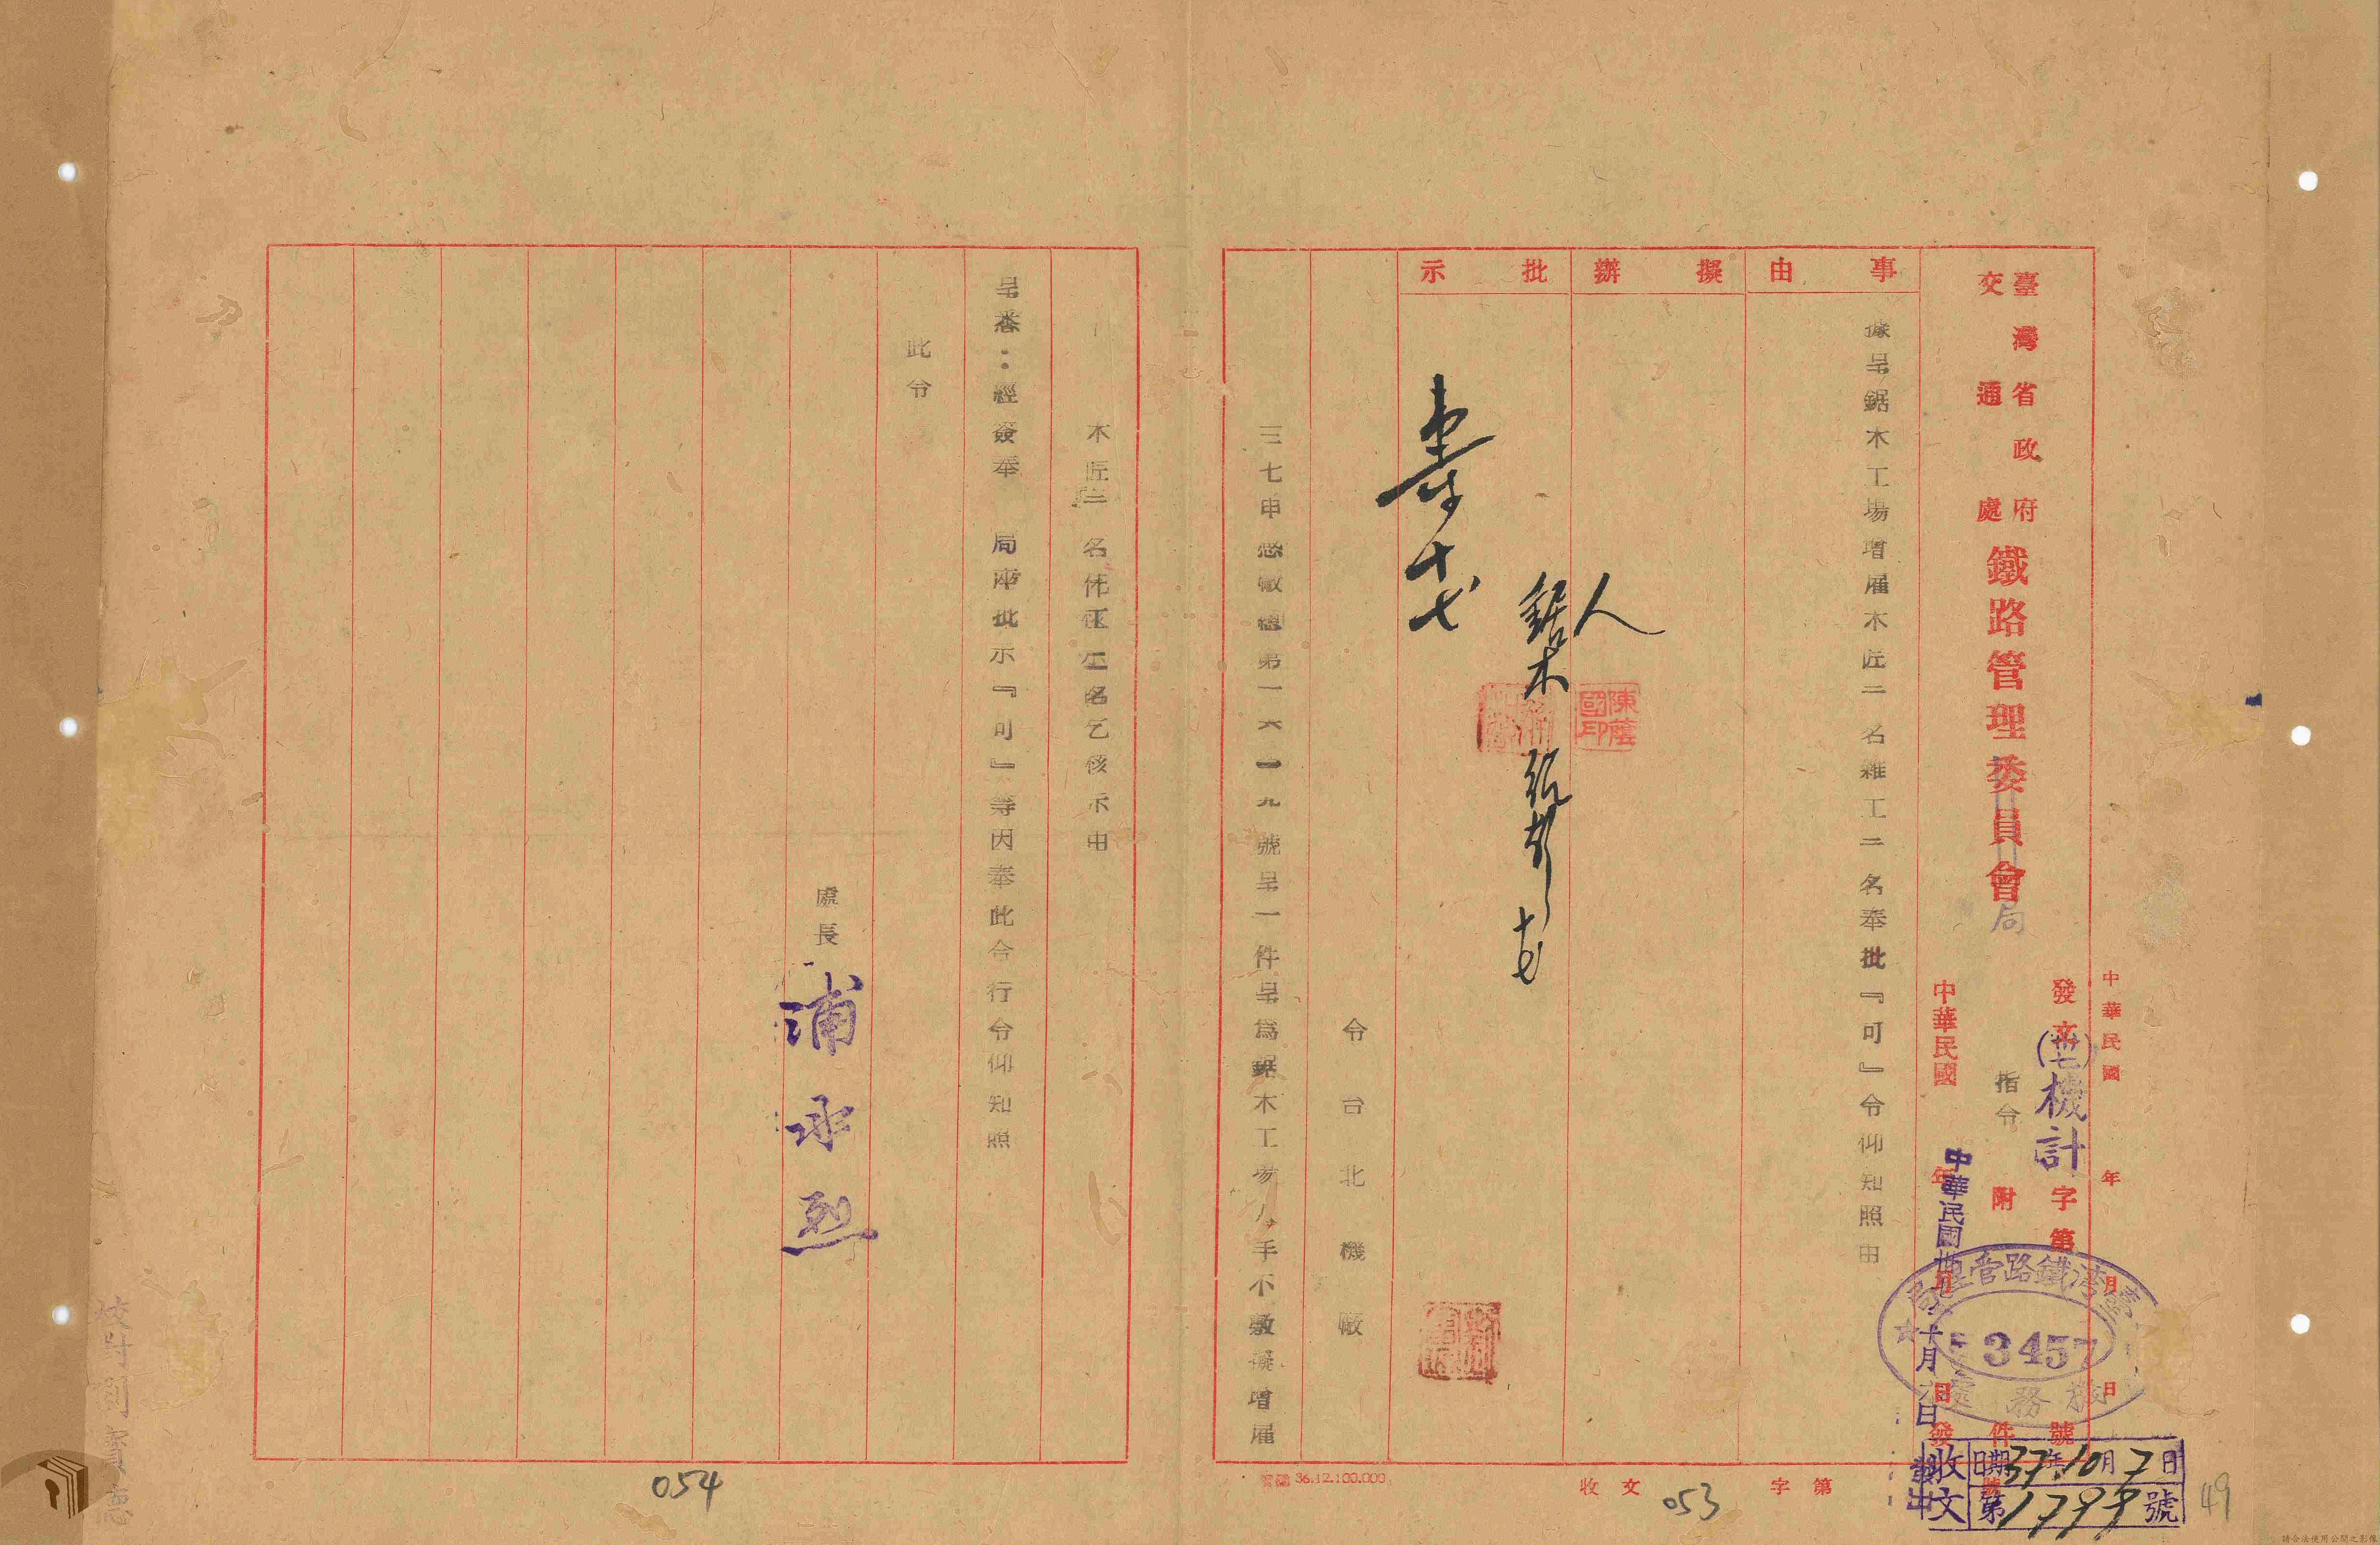 臺灣省政府
交通處
鐵路管理委員會
局
中華民國 年 月 日
發文 字第 號
(卅七)機計
指令
附 件
中華民國 年 月 日發
中華民國卅七年十月六日
發出
臺灣鐵路管理局
53457
機務處
事由
據呈鋸木工場增雇木匠二名雜工二名奉批『可』令仰知照由
擬辦
批示
人
鋸木
十七
陳蔭國印
十七
令台北機廠
三七申感廠總第一六一九號呈一件呈為鋸木工場人手不敷擬增雇
收文 字第 號
053
36.12.100.000
收文
日期37年10月7日
第1799號
49
木匠二名雜工二名乞核示由
呈悉：經簽奉 局座批示『可』等因奉此合行令仰知照
此令
處長
浦永烈
054
校對劉寶德
請合法使用公開之影像